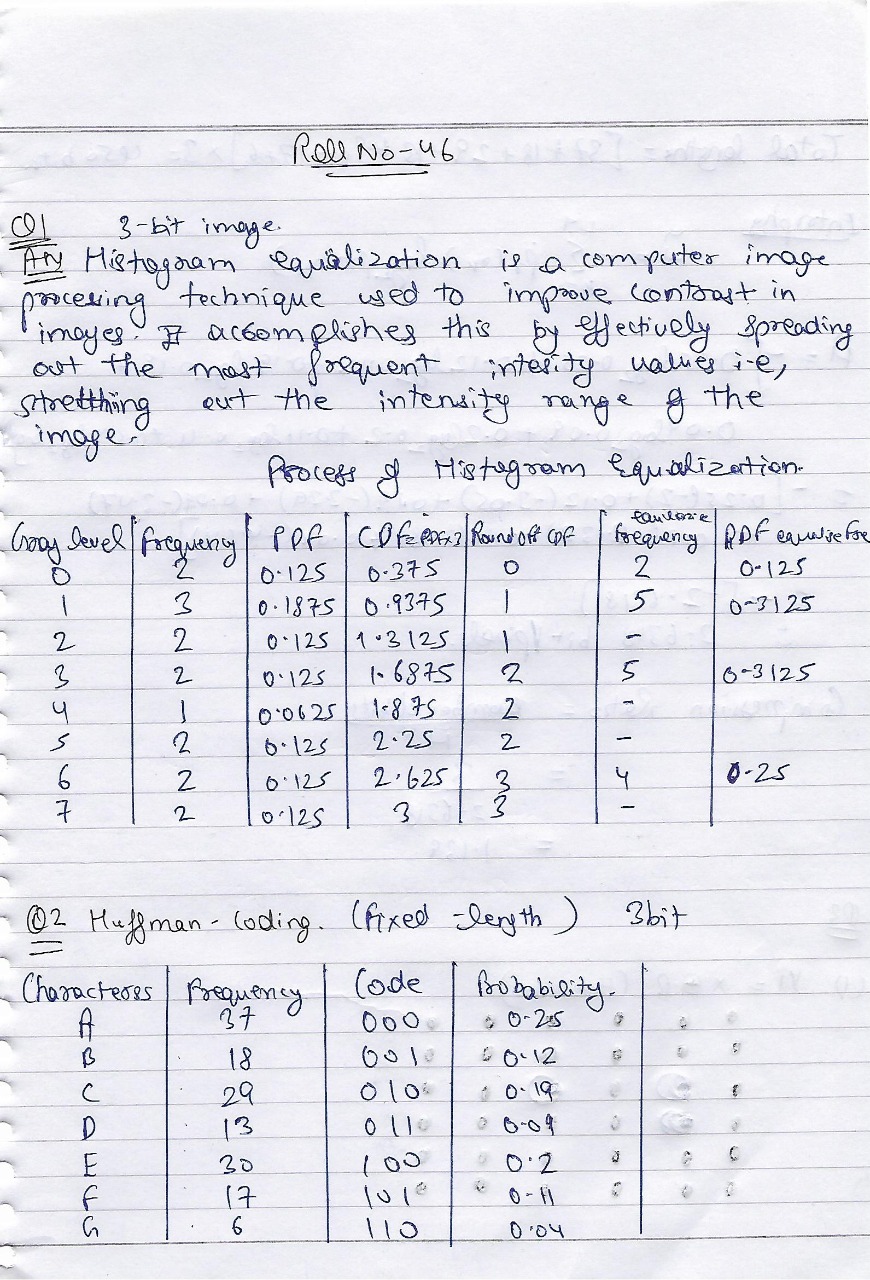 Roll No-46
Q1 3-bit image.
Ans Histogram equalization is a computer image
processing technique used to improve contrast in
images. It accomplishes this by effectively spreading
out the most frequent intesity values i-e,
stretthing out the intensity range of the
image.
Process of Histogram Equalization.
Gray level Frequency PDF CDF=PDF×3 Round off CDF equlize frequency PDF equlize Fre
0 2 0.125 0.375 0 2 0.125
1 3 0.1875 0.9375 1 5 0.3125
2 2 0.125 1.3125 1 -
3 2 0.125 1.6875 2 5 0.3125
4 1 0.0625 1.875 2 -
5 2 0.125 2.25 2 -
6 2 0.125 2.625 3 4 0.25
7 2 0.125 3 3 -
Q2 Huffman-Coding. (fixed-length) 3bit
Characteres Frequency Code Probability.
A 37 000 0.25
B 18 001 0.12
C 29 010 0.19
D 13 011 0.09
E 30 100 0.2
F 17 101 0.11
G 6 110 0.04